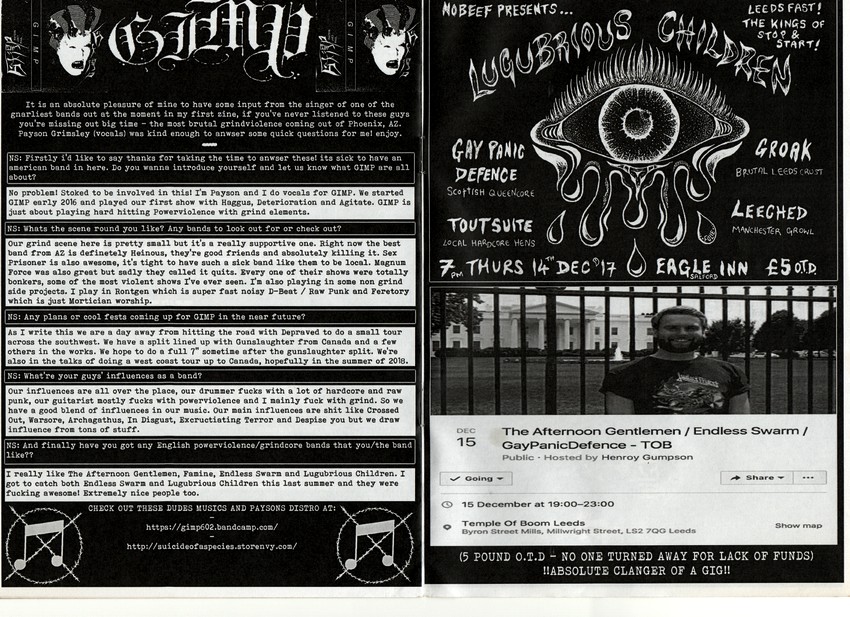 GIMP
It is an absolute pleasure of mine to have some input from the singer of one of the
gnarliest bands out at the moment in my first zine, if you've never listened to these guys
you're missing out big time - the most brutal grindviolence coming out of Phoenix, AZ.
Payson Grimsley (vocals) was kind enough to anwser some quick questions for me! enjoy.
NS: Firstly i'd like to say thanks for taking the time to anwser these! its sick to have an
american band in here. Do you wanna introduce yourself and let us know what GIMP are all
about?
No problem! Stoked to be involved in this! I'm Payson and I do vocals for GIMP. We started
GIMP early 2016 and played our first show with Haggus, Deterioration and Agitate. GIMP is
just about playing hard hitting Powerviolence with grind elements.
NS: Whats the scene round you like? Any bands to look out for or check out?
Our grind scene here is pretty small but it's a really supportive one. Right now the best
band from AZ is definetely Heinous, they're good friends and absolutely killing it. Sex
Prisoner is also awesome, it's tight to have such a sick band like them to be local. Magnum
Force was also great but sadly they called it quits. Every one of their shows were totally
bonkers, some of the most violent shows I've ever seen. I'm also playing in some non grind
side projects. I play in Rontgen which is super fast noisy D-Beat / Raw Punk and Feretory
which is just Mortician worship.
NS: Any plans or cool fests coming up for GIMP in the near future?
As I write this we are a day away from hitting the road with Depraved to do a small tour
across the southwest. We have a split lined up with Gunslaughter from Canada and a few
others in the works. We hope to do a full 7" sometime after the gunslaughter split. We're
also in the talks of doing a west coast tour up to Canada, hopefully in the summer of 2018.
NS: What're your guys' influences as a band?
Our influences are all over the place, our drummer fucks with a lot of hardcore and raw
punk, our guitarist mostly fucks with powerviolence and I mainly fuck with grind. So we
have a good blend of influences in our music. Our main influences are shit like Crossed
Out, Warsore, Archagathus, In Disgust, Excructiating Terror and Despise you but we draw
influence from tons of stuff.
NS: And finally have you got any English powerviolence/grindcore bands that you/the band
like??
I really like The Afternoon Gentlemen, Famine, Endless Swarm and Lugubrious Children. I
got to catch both Endless Swarm and Lugubrious Children this last summer and they were
fucking awesome! Extremely nice people too.
CHECK OUT THESE DUDES MUSICS AND PAYSONS DISTRO AT:
-
https://gimp602.bandcamp.com/
-
http://suicideofaspecies.storenvy.com/
NOBEEF PRESENTS...
LEEDS FAST!
THE KINGS OF
STOP &
START!
LUGUBRIOUS CHILDREN
GAY PANIC
DEFENCE
SCOTTISH QUEENCORE
TOUTSUITE
LOCAL HARDCORE HENS
GROAK
BRUTAL LEEDS CRUST
LEECHED
MANCHESTER GROWL
7PM THURS 14TH DEC '17 EAGLE INN £5 O.T.D.
SALFORD
DEC
15
The Afternoon Gentlemen / Endless Swarm /
GayPanicDefence - TOB
Public · Hosted by Henroy Gumpson
Going
Share
...
15 December at 19:00–23:00
Temple Of Boom Leeds
Byron Street Mills, Millwright Street, LS2 7QG Leeds
Show map
(5 POUND O.T.D - NO ONE TURNED AWAY FOR LACK OF FUNDS)
!!ABSOLUTE CLANGER OF A GIG!!